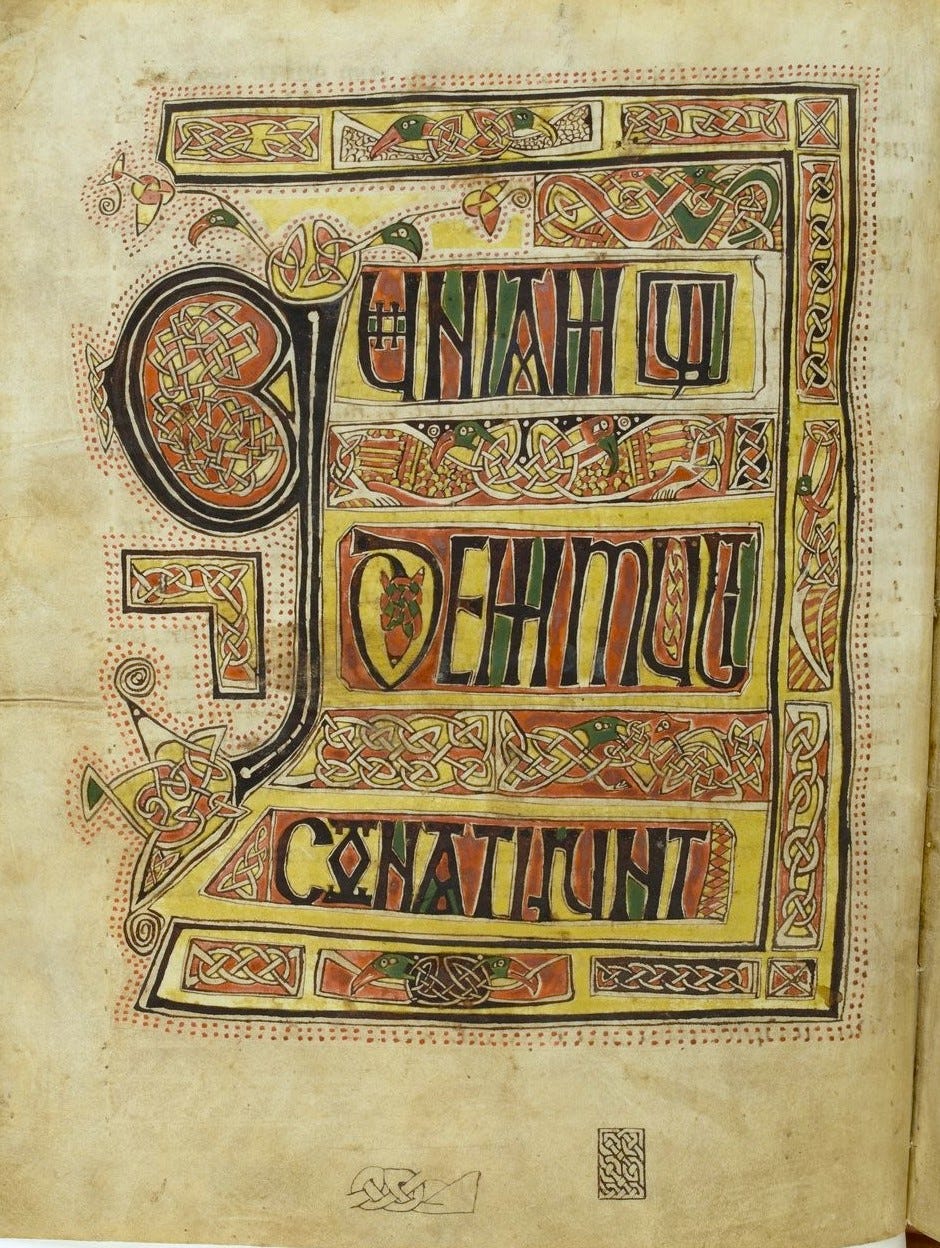 QUONIAM QUI
DEM MULTI
CONATISUNT